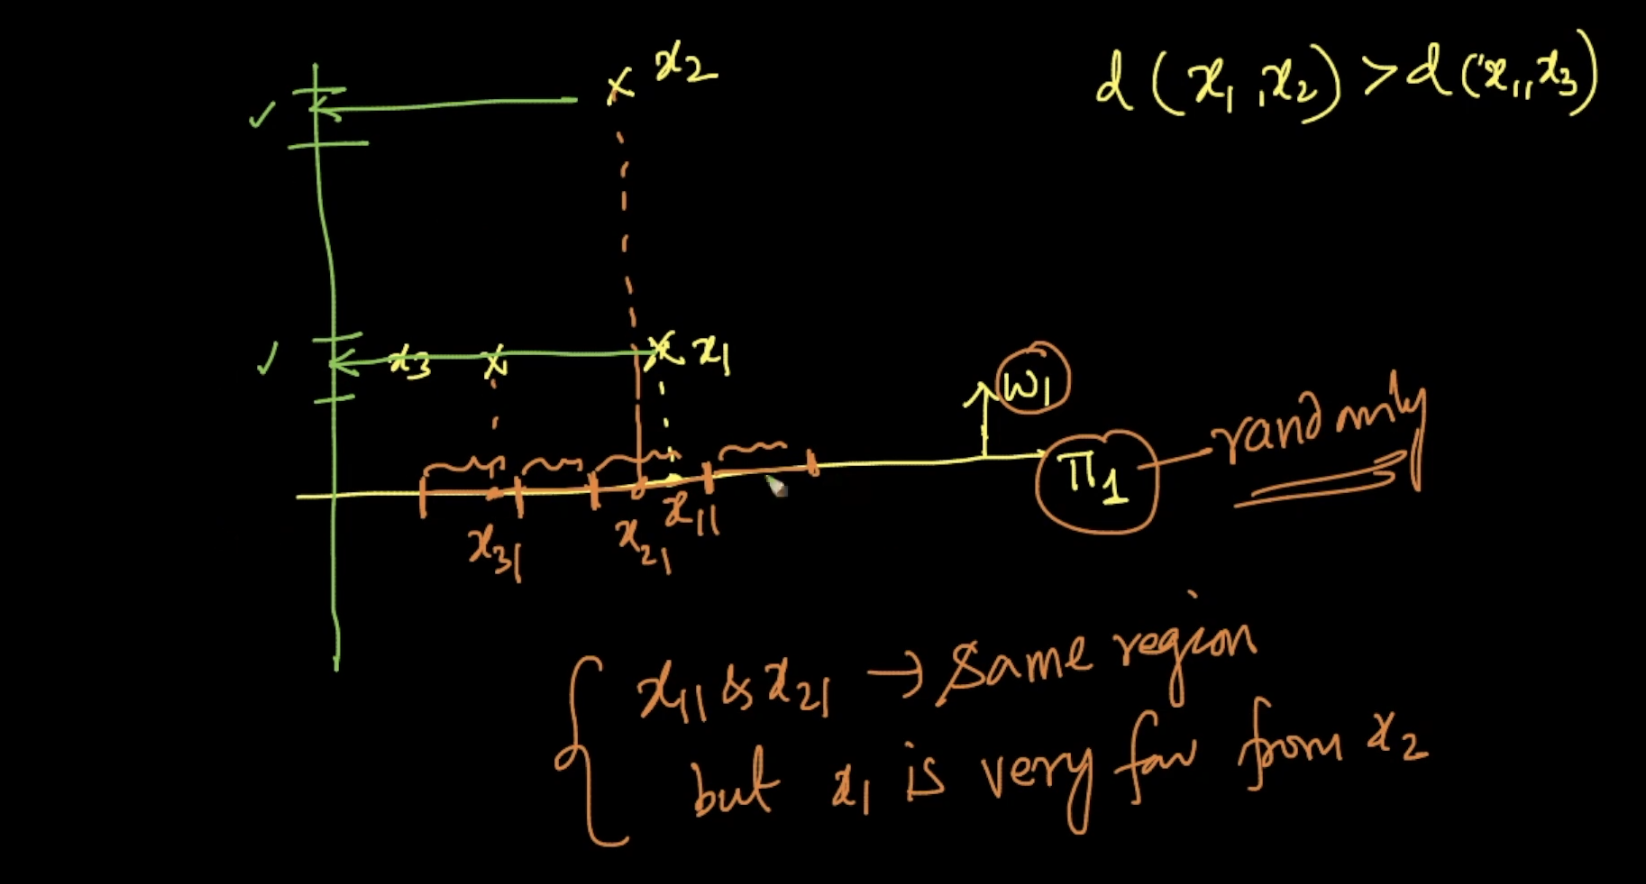 x2
d (x1, x2) > d (x1, x3)
x3
x1
w1
randomly
π1
x31
x21
x11
x11 & x21 → same region
but x1 is very far from x2